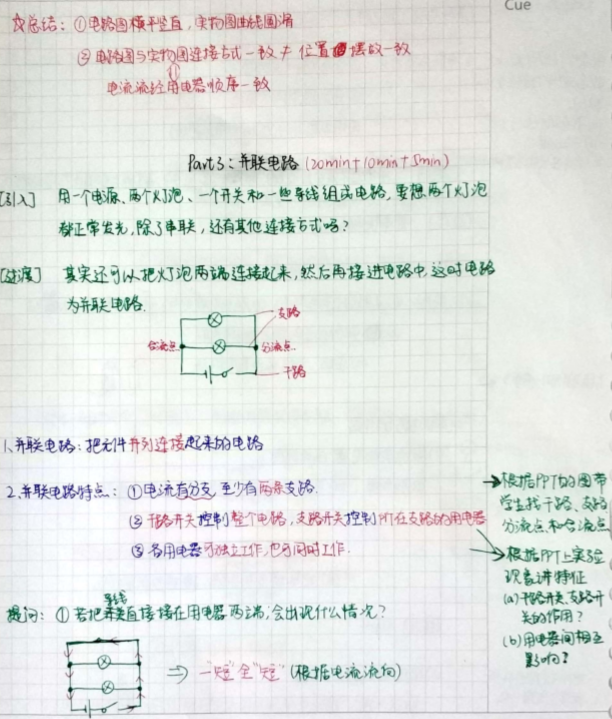 Cue
总结：①电路图横平竖直，实物图曲线圆滑
②电路图与实物图连接方式一致≠位置摆放一致
电流流经用电器顺序一致
Part 3：并联电路（20min+10min+5min）
[引入] 用一个电源、两个灯泡、一个开关和一些导线组成电路，要想两个灯泡
都正常发光，除了串联，还有其他连接方式吗？
[过渡] 其实还可以把灯泡两端连接起来，然后再接进电路中，这时电路
为并联电路.
支路
合流点 分流点
干路
1、并联电路：把元件并列连接起来的电路
2、并联电路特点：①电流有分支，至少有两条支路.
②干路开关控制整个电路，支路开关控制所在支路的用电器
③各用电器可独立工作，也可同时工作.
→根据PPT的图带
学生找干路、支路
分流点和合流点
→根据PPT上实验
现象讲特征
(a)干路开关、支路开
关的作用？
(b)用电器间相互
影响？
导线
提问：①若把直接接在用电器两端，会出现什么情况？
⇒ 一"短"全"短"（根据电流流向）